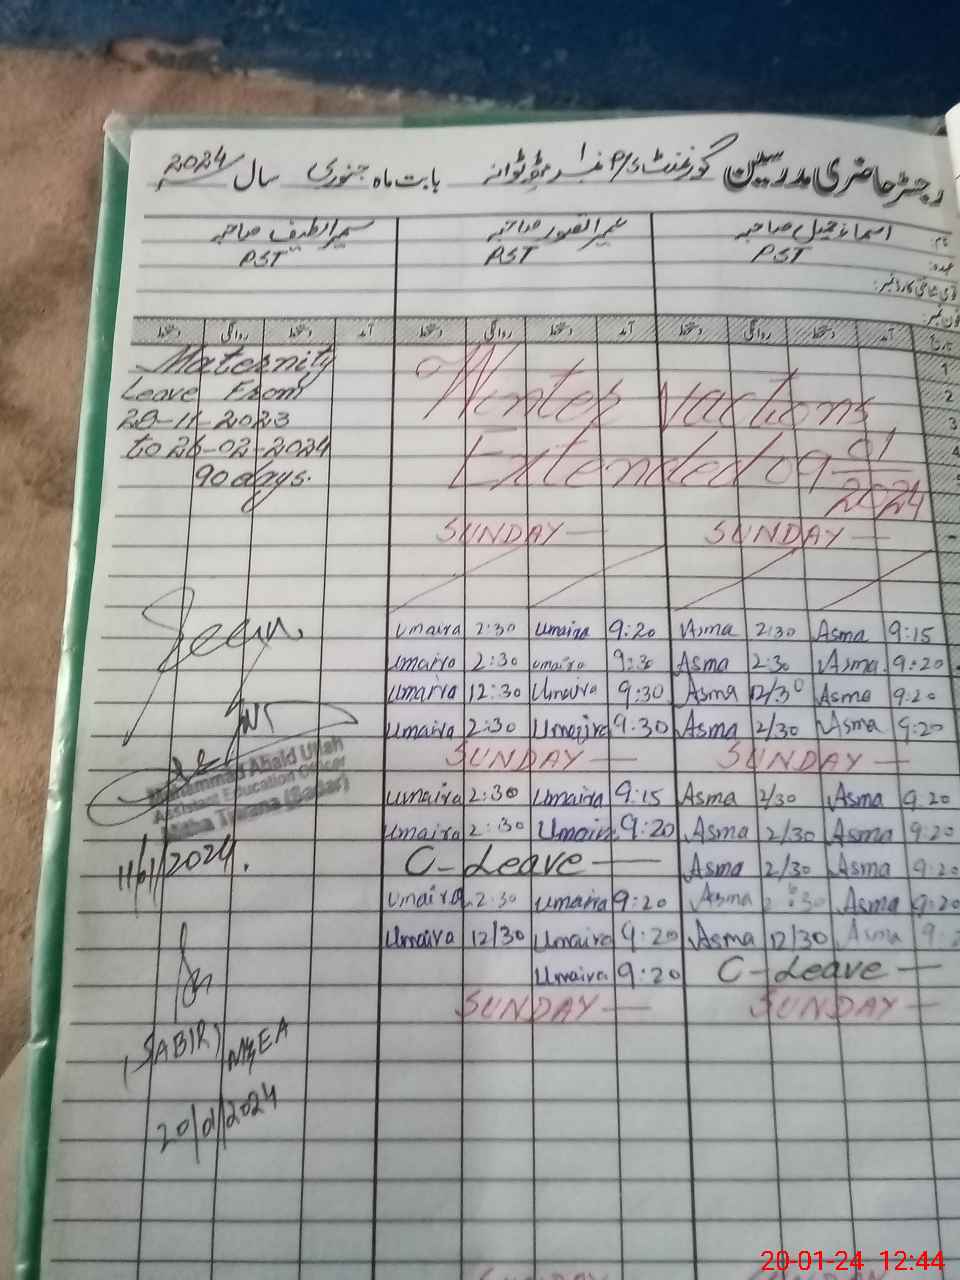 رجسٹر حاضری مدرسین گورنمنٹ P/S ٹوانہ بابت ماہ جنوری سال 2024
نام: اسماء جمیل صاحبہ عمیرا صاحبہ سمیرا لطیف صاحبہ
عہدہ: PST PST PST
آمد دستخط روانگی دستخط آمد دستخط روانگی دستخط آمد دستخط روانگی دستخط
Maternity
Leave From
28-11-2023
to 26-02-2024
90 days.
Winter Vactions
Extended 09 01
2024
1
2
3
4
SUNDAY — SUNDAY —
Umaira 2:30 Umaira 9:20 Asma 2:30 Asma 9:15
Umaira 2:30 Umaira 9:30 Asma 2:30 Asma 9:20
Umaira 12:30 Umaira 9:30 Asma 12/30 Asma 9:20
Umaira 2:30 Umaira 9:30 Asma 2/30 Asma 9:20
SUNDAY — SUNDAY —
Umaira 2:30 Umaira 9:15 Asma 2/30 Asma 9:20
Umaira 2:30 Umaira 9:20 Asma 2/30 Asma 9:20
C-Leave — Asma 2/30 Asma 9:20
Umaira 2:30 Umaira 9:20 Asma 2:30 Asma 9:20
Umaira 12/30 Umaira 9:20 Asma 12/30 Asma
Umaira 9:20 C-Leave —
SUNDAY — SUNDAY —
Muhammad Abaid Ullah
Assistant Education Officer
Mitha Tiwana (Sadar)
11/1/2024.
(SABIR) MEA
20/01/2024
20-01-24 12:44